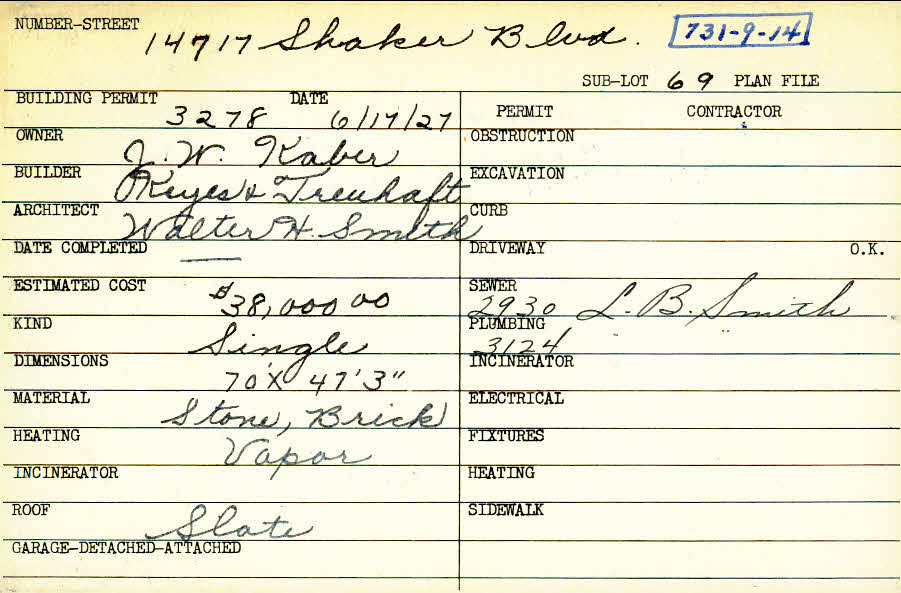 NUMBER-STREET 14717 Shaker Blvd. 731-9-14
SUB-LOT 69 PLAN FILE
BUILDING PERMIT 3278 DATE 6/17/27
PERMIT CONTRACTOR
OWNER J. W. Kaber
OBSTRUCTION
BUILDER Keyes & Treuhaft
EXCAVATION
ARCHITECT Walter H. Smith
CURB
DATE COMPLETED —
DRIVEWAY O.K.
ESTIMATED COST $38,000 00
SEWER 2930 L. B. Smith
KIND Single
PLUMBING 3124 " "
DIMENSIONS 70' X 47'3"
INCINERATOR
MATERIAL Stone, Brick
ELECTRICAL
HEATING Vapor
FIXTURES
INCINERATOR
HEATING
ROOF Slate
SIDEWALK
GARAGE-DETACHED-ATTACHED